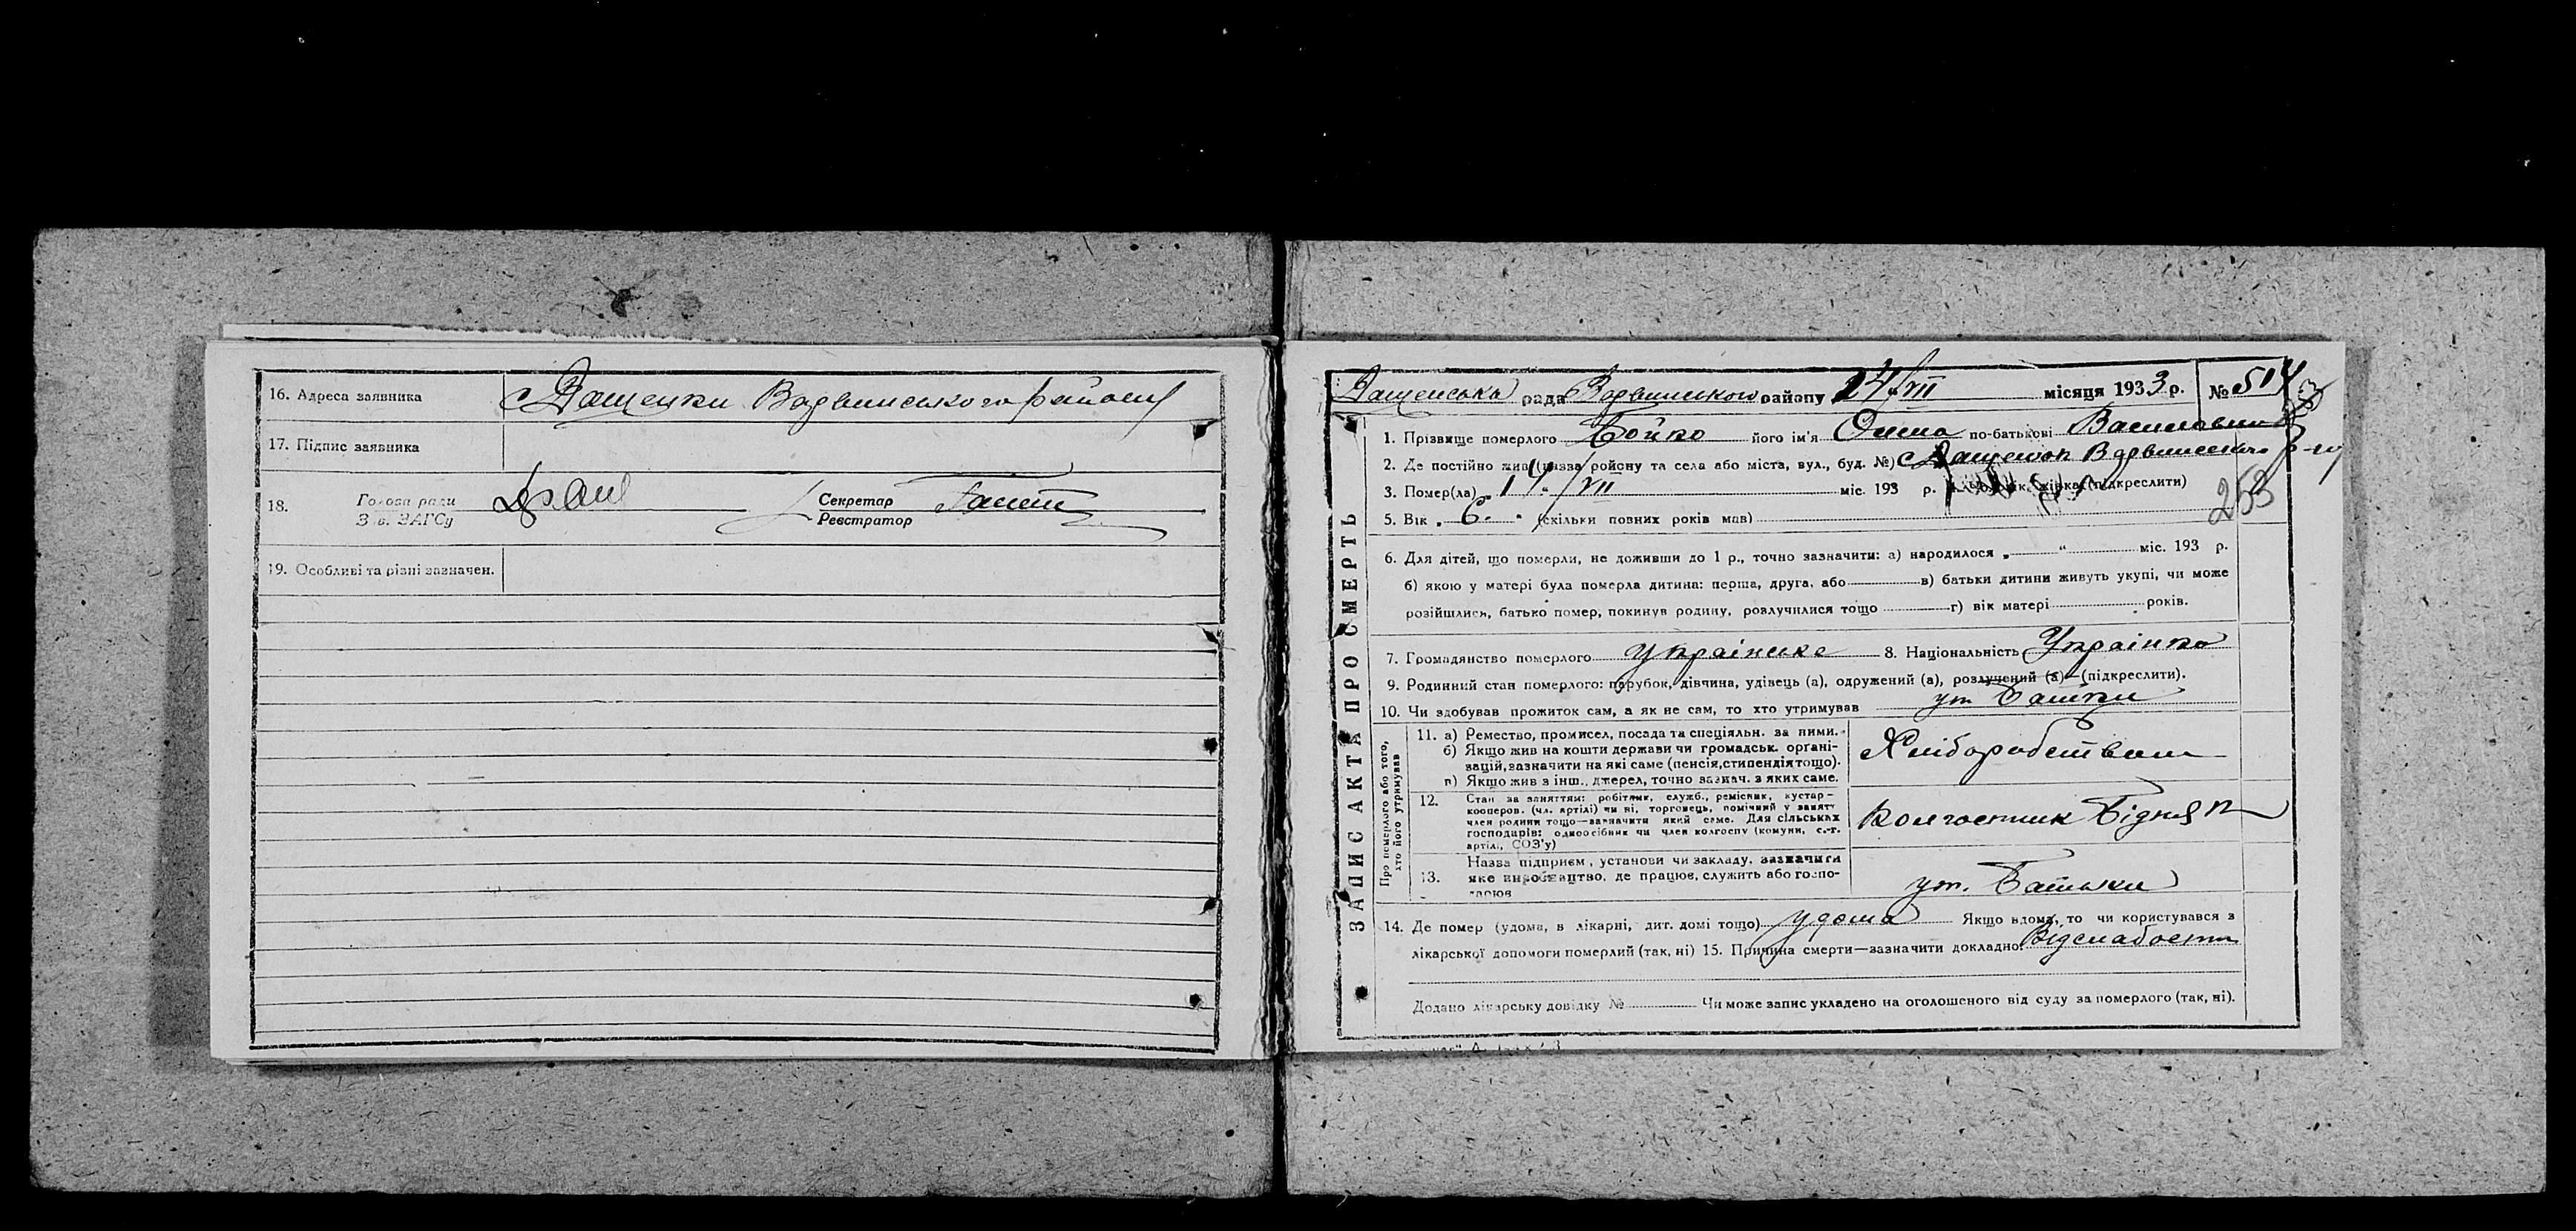 16. Адреса заявника с Дащенки Варвинського району
17. Підпис заявника
18. Голова ради Секретар
Зав. ЗАГСу Реєстратор
19. Особливі та різні зазначен.
ЗАПИС АКТА ПРО СМЕРТЬ
Дащенська рада Варвинського району 24/VII місяця 1933 р. № 514
1. Прізвище померлого Бойко його ім'я по-батькові Василівна
2. Де постійно жив (назва району та села або міста, вул., буд. №) с Дащенки Варвинського р-ну
3. Помер(ла) „14“ /VII міс. 193 р. (підкреслити)
253
5. Вік „6.“ (скільки повних років мав)
6. Для дітей, що померли, не доживши до 1 р., точно зазначити: а) народилося „ “ міс. 193 р.
б) якою у матері була померла дитина: перша, друга, або в) батьки дитини живуть укупі, чи може
розійшлись, батько помер, покинув родину, розлучилися тощо г) вік матері років.
7. Громадянство померлого українське 8. Національність Українка
9. Родинний стан померлого: парубок, дівчина, удівець (а), одружений (а), розлучений (а) (підкреслити).
10. Чи здобував прожиток сам, а як не сам, то хто утримував ут Батьки
Про померлого або того, хто його утримував
11. а) Ремество, промисел, посада та спеціяльн. за ними.
б) Якщо жив на кошти держави чи громадськ. органі-
зацій, зазначити на які саме (пенсія, стипендія тощо).
в) Якщо жив з інш. джерел, точно зазнач. з яких саме.
Хліборобством
12. Стан за заняттям: робітник, служб., ремісник, кустар-
кооперов. (чл. артілі) чи ні, торговець, помічний у занятт
член родини тощо—зазначити який саме. Для сільських
господарів: одноосібник чи член колгоспу (комуни, с.-г.
артілі, СОЗ'у)
Колгоспник Бідняк
13. Назва підприєм, установи чи закладу, зазначити
яке виробництво, де працює, служить або госпо-
дарює
ут. Батьки
14. Де помер (удома, в лікарні, дит. домі тощо) удома Якщо вдома, то чи користувався з
лікарської допомоги померлий (так, ні) 15. Причина смерти—зазначити докладно: Відслабости
Додано лікарську довідку № Чи може запис укладено на оголошеного від суду за померлого (так, ні).